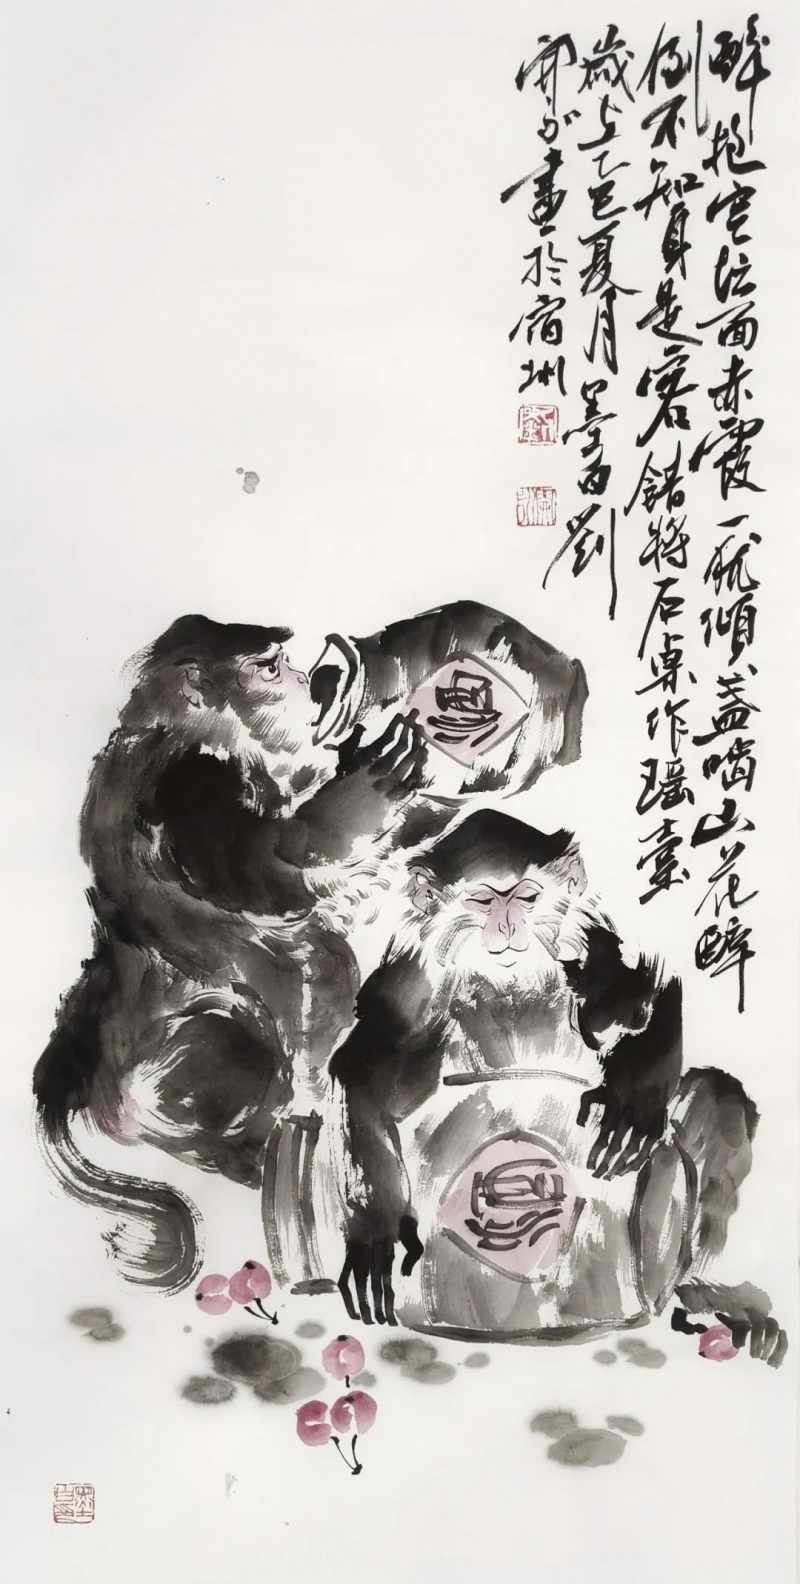 醉抱空坛面赤霞一猴倾盏啃山花醉
倒不知身是客错将石桌作瑶台
岁上乙巳夏月墨白刘
开云画於宿州
酒